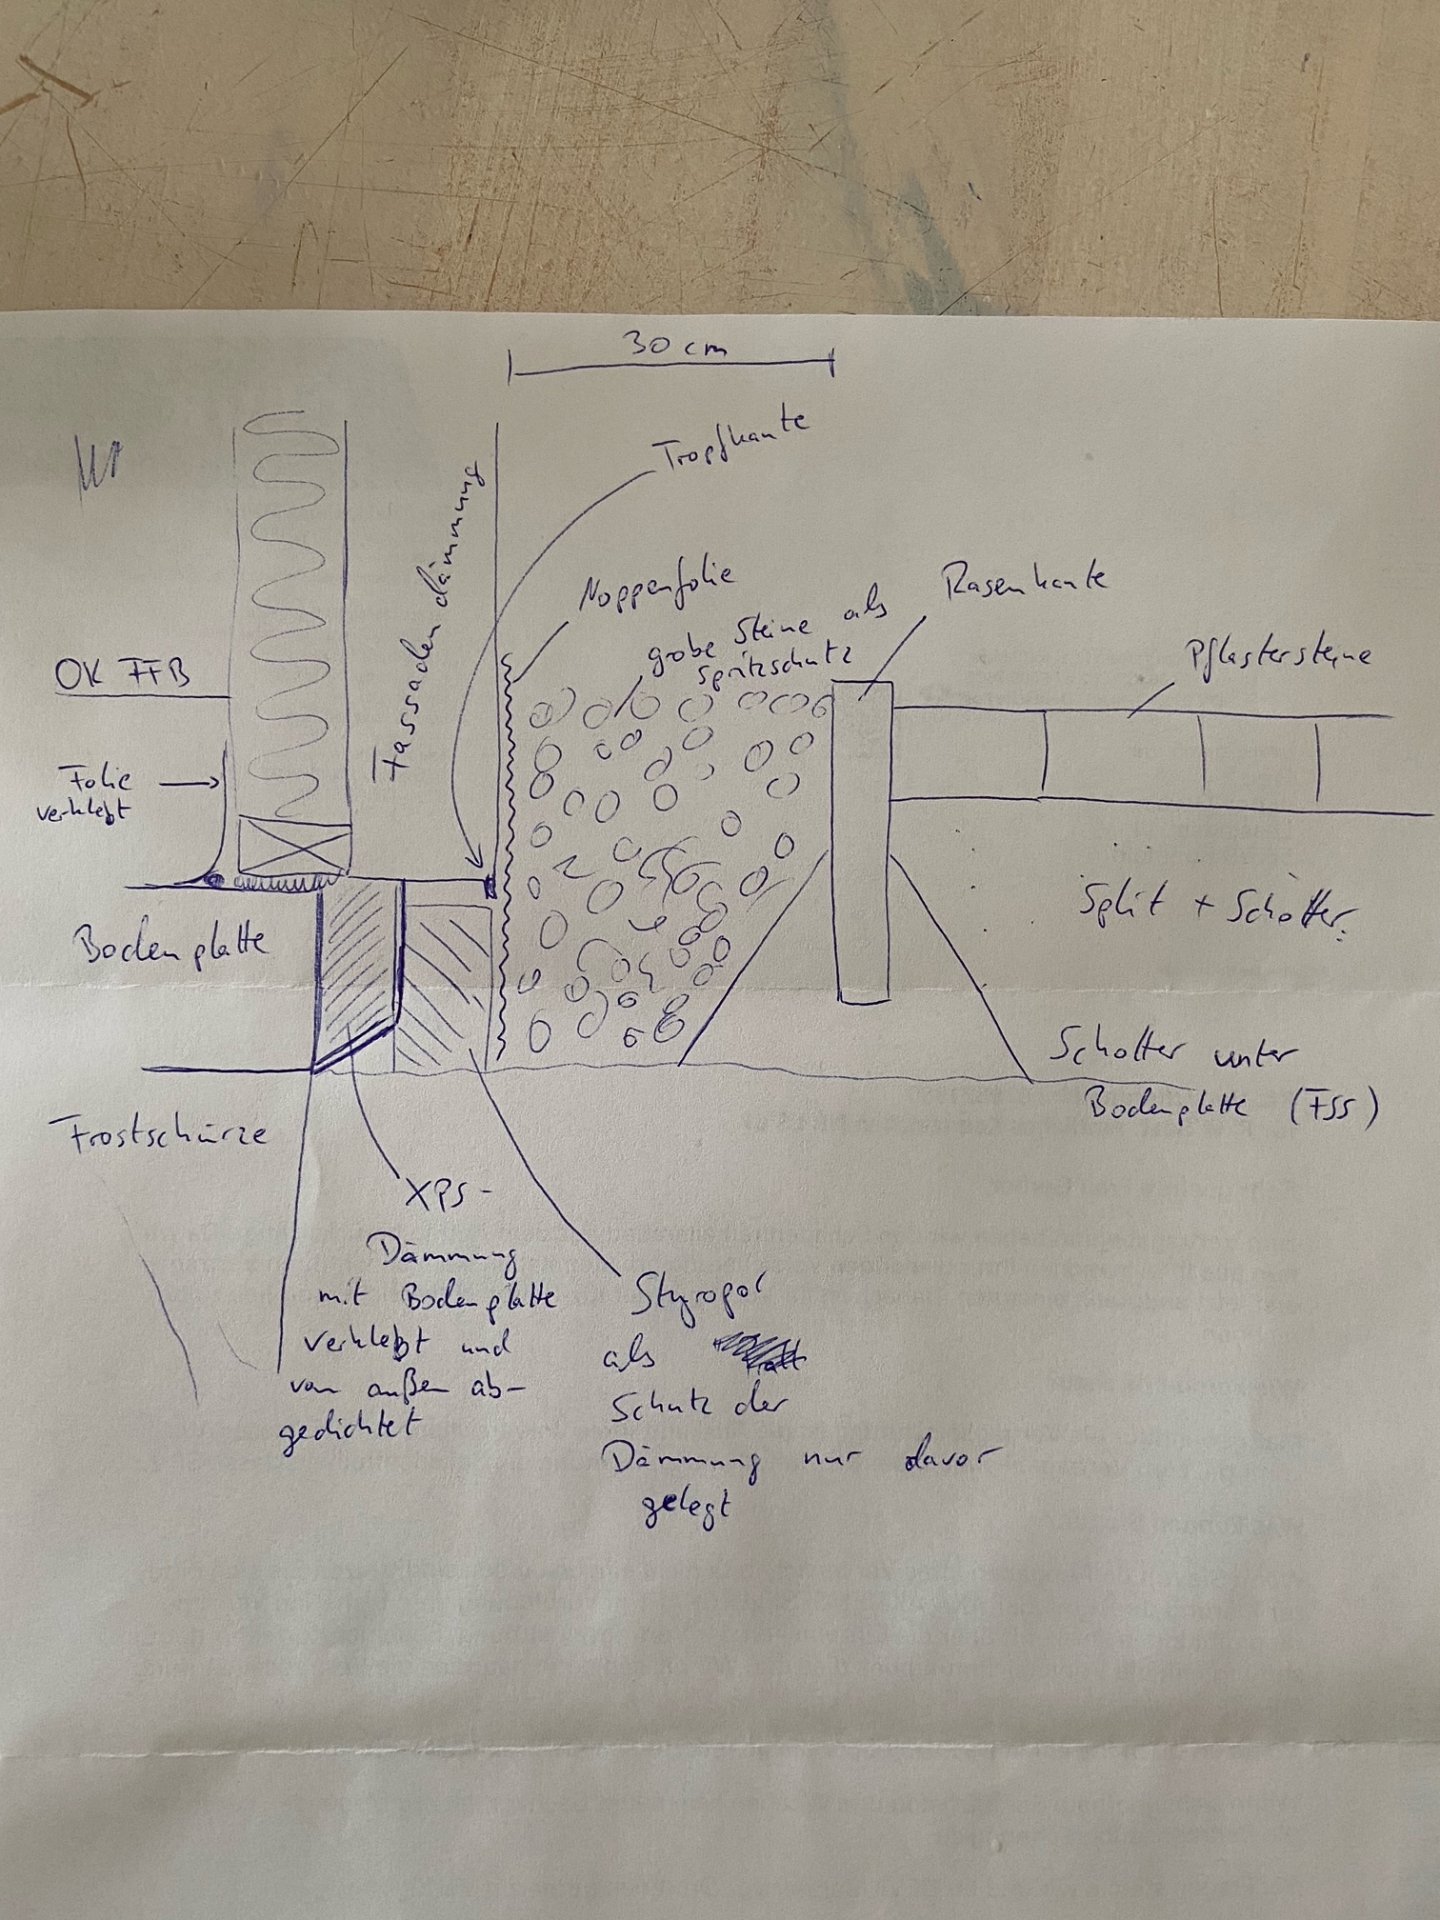 30 cm
Tropfkante
Fassadendämmung
Noppenfolie
grobe Steine als
Spritzschutz
Rasenkante
Pflastersteine
OK FFB
Folie
verklebt
Bodenplatte
Split + Schotter
Schotter unter
Bodenplatte (FSS)
Frostschürze
XPS-
Dämmung
mit Bodenplatte
verklebt und
von außen ab-
gedichtet
Styropor
als
Schutz der
Dämmung nur davor
gelegt